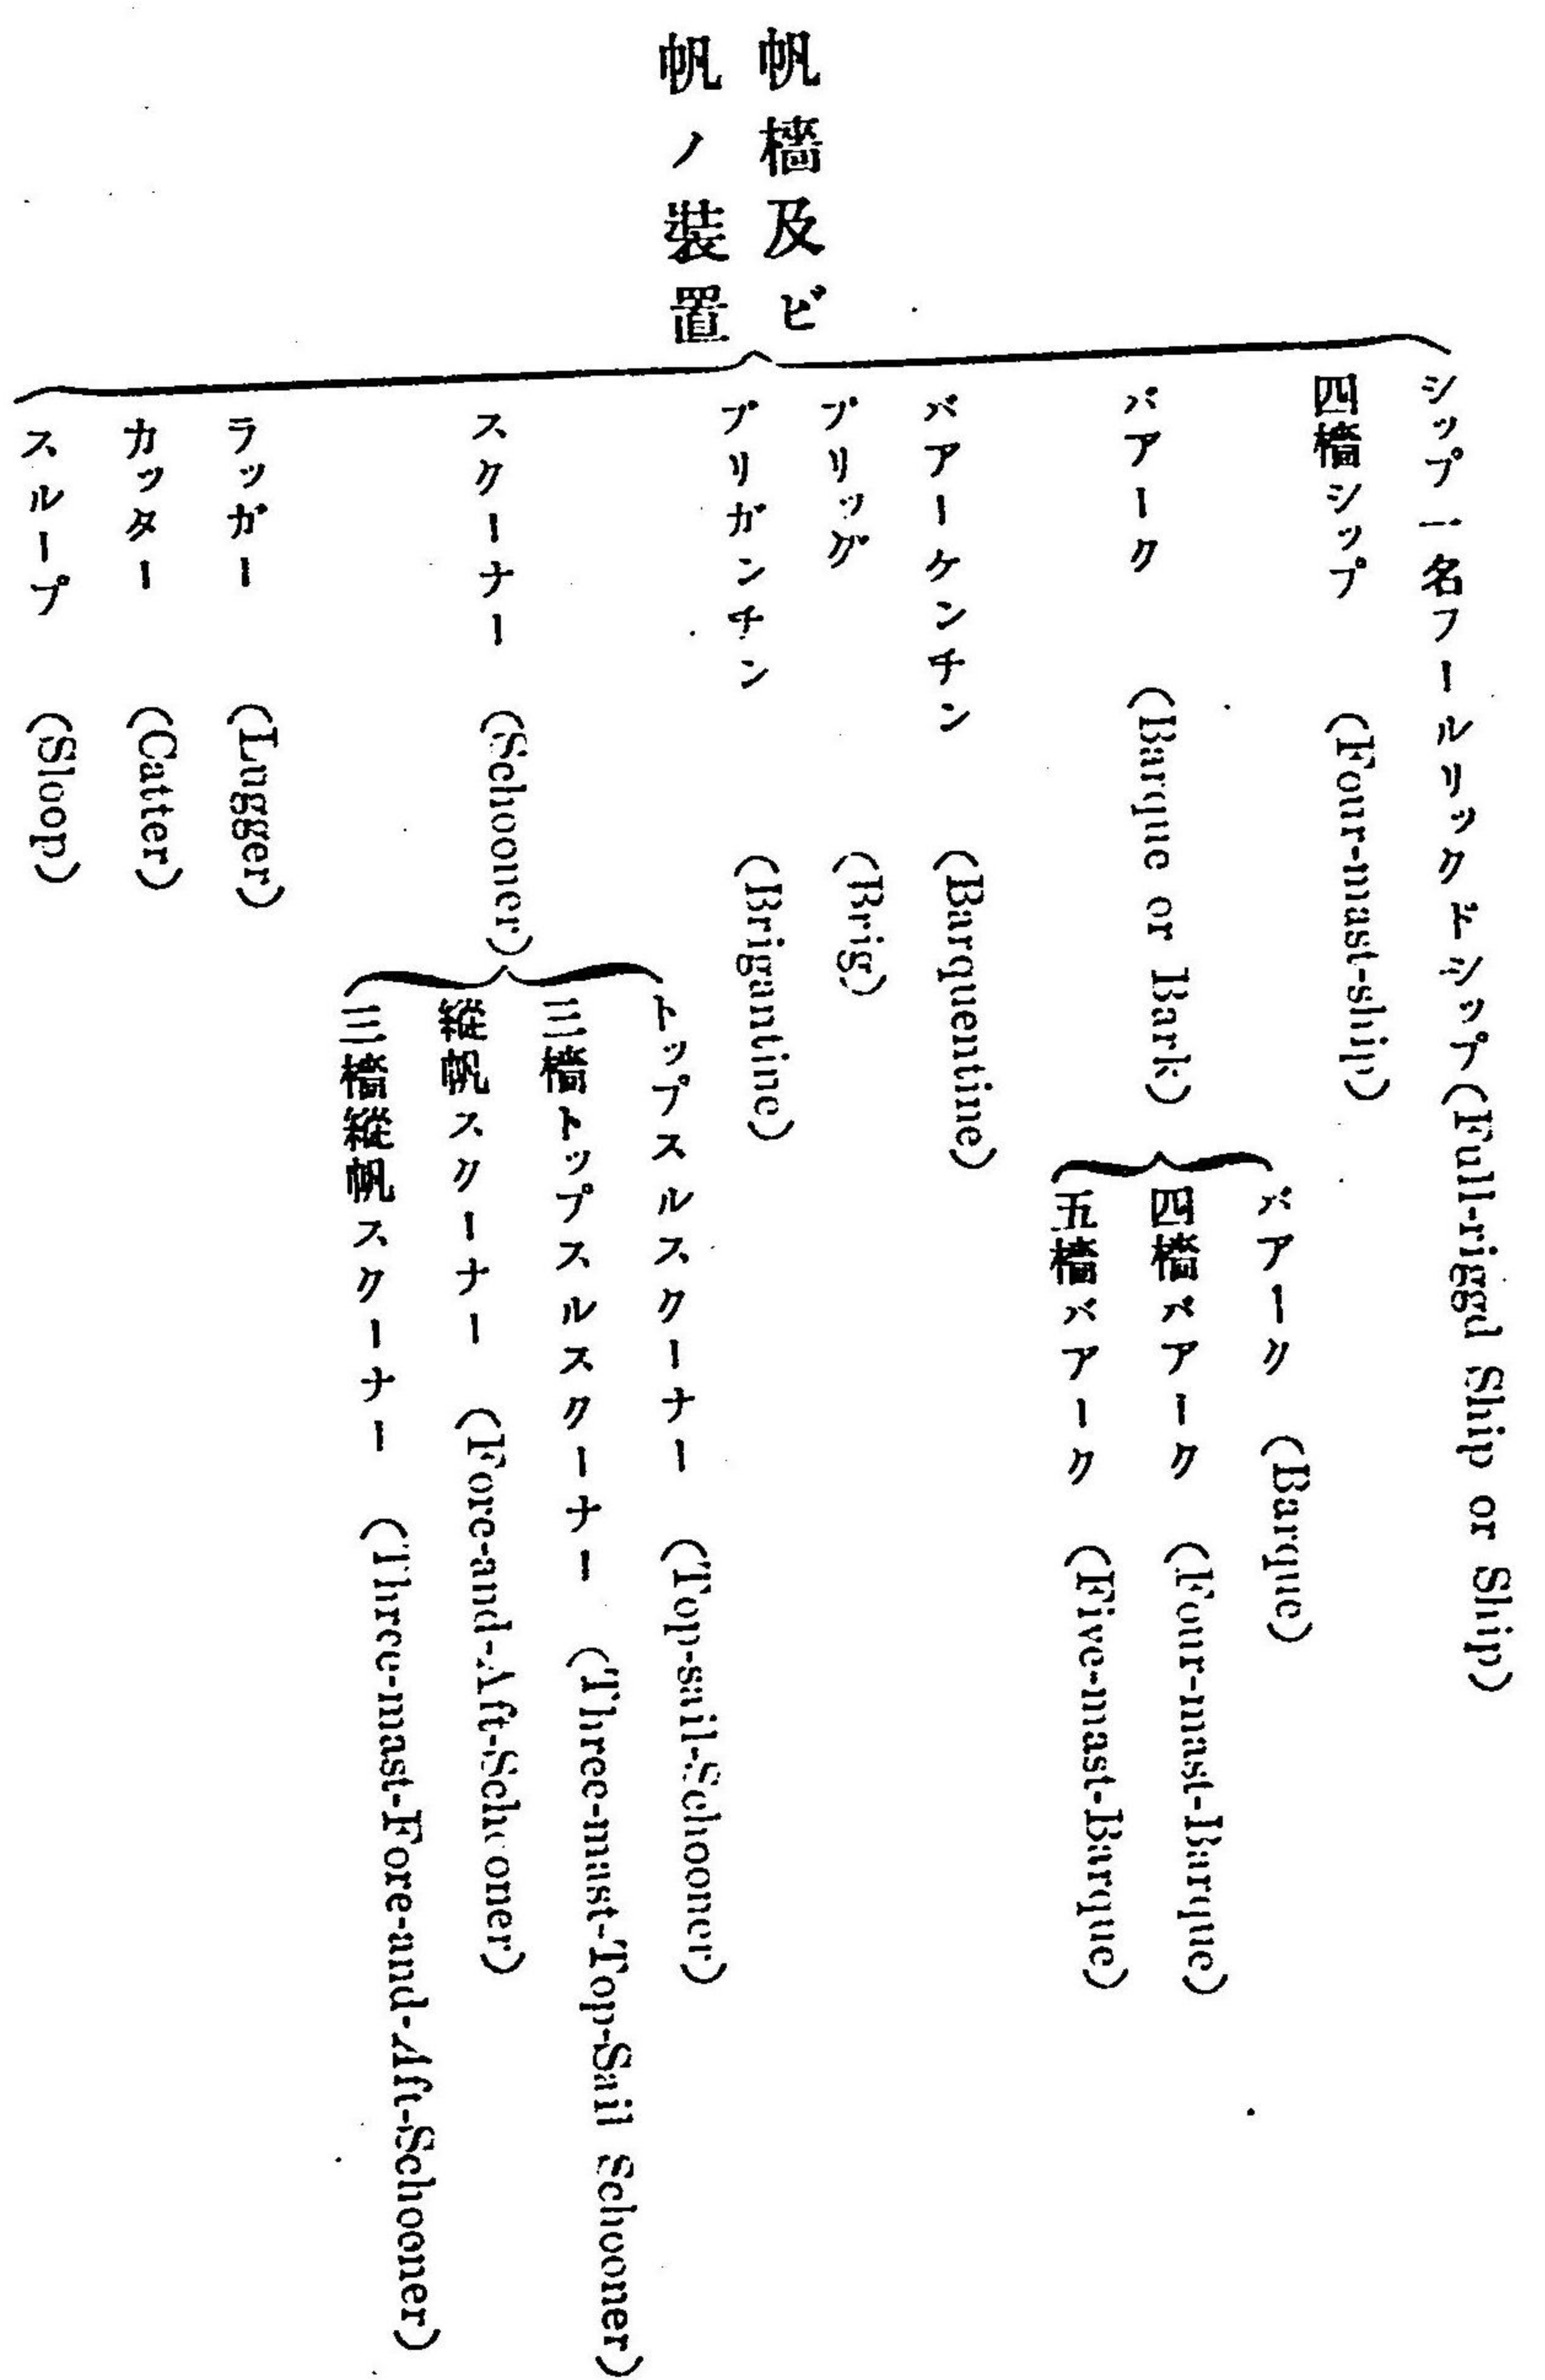 帆檣及ビ
帆ノ裝置
シップ一名フールリックドシップ (Full-riggd Ship or Ship)
四檣シップ (Four-mast-ship)
バアーク (Barque or Bark)
バアーク (Barque)
四檣バアーク (Four-mast-Barque)
五檣バアーク (Five-mast-Barque)
バアーケンチン (Barquentine)
ブリッグ (Brig)
ブリガンチン (Brigantine)
スクーナー (Schooner)
トップスルスクーナー (Top-sail-Schooner)
三檣トップスルスクーナー (Three-mast-Top-Sail Schooner)
縱帆スクーナー (Fore-and-Aft-Schooner)
三檣縱帆スクーナー (Three-mast-Fore-and-Aft-Schooner)
ラッガー (Lugger)
カッター (Catter)
スループ (Sloop)